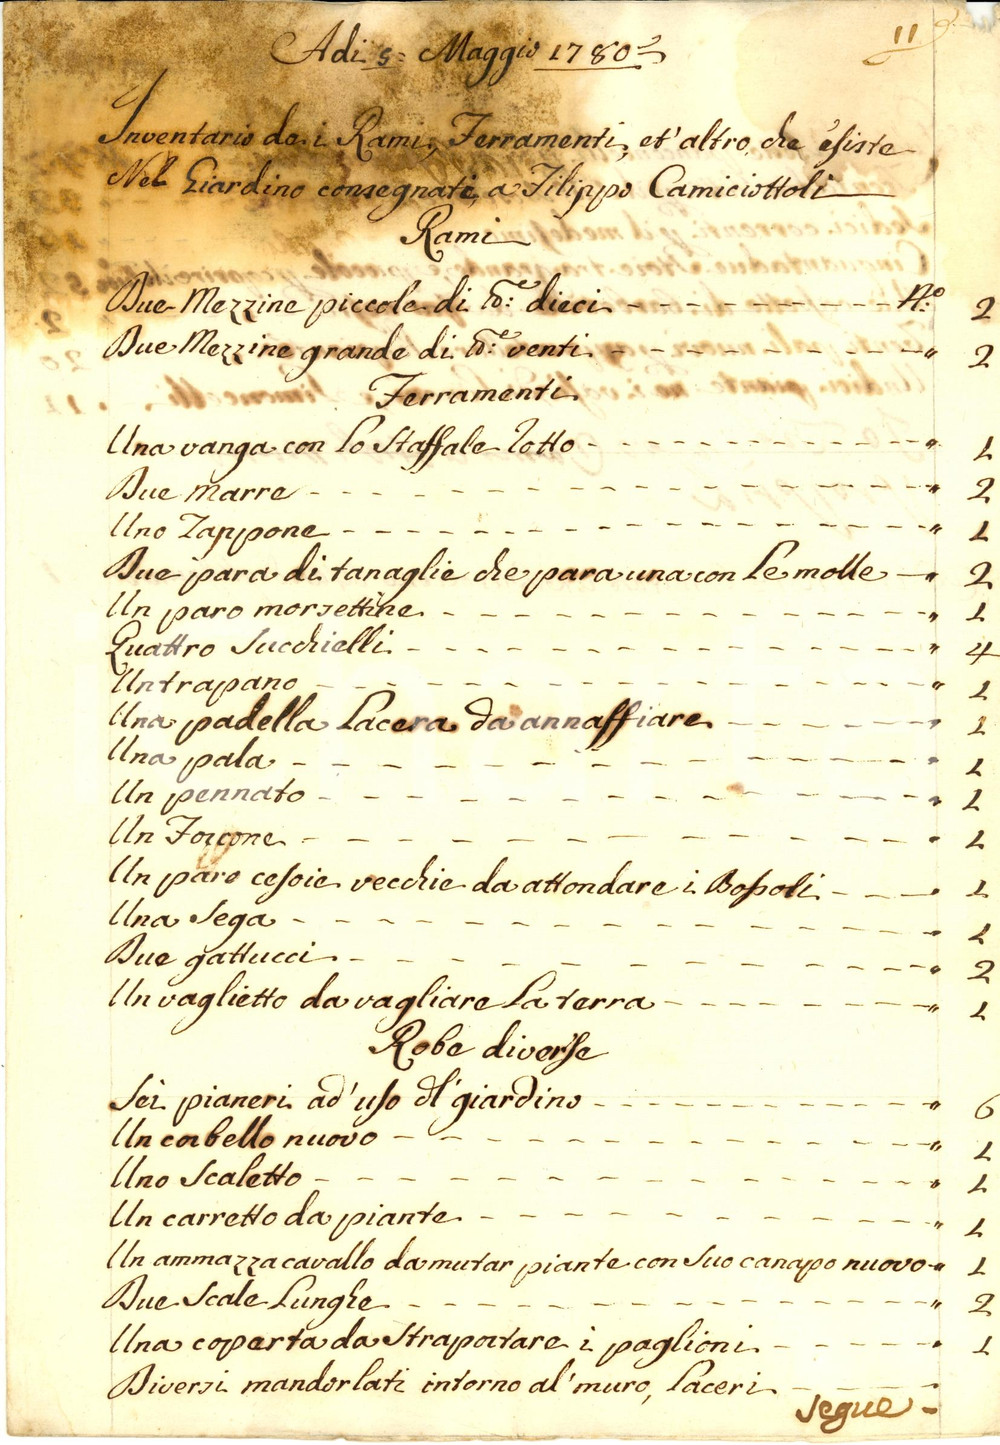 11
Adi 5: Maggio 1780
Inventario de i Rami, Ferramenti, et' altro, che esiste
Nel Giardino consegnati, a Filippo Camiciottoli
Rami
Due Mezzine piccole di lb.e dieci N.o 2
Due Mezzine grande di lb.e venti " 2
Ferramenti
Una vanga con lo Staffale rotto " 1
Due marre " 2
Uno Zappone " 1
Due para di tanaglie che para una con le molle " 2
Un paro morsettine " 1
Quattro Succhielli " 4
Un trapano " 1
Una padella lacera da annaffiare " 1
Una pala " 1
Un pennato " 1
Un Forcone " 1
Un paro cesoie vecchie da attondare i Bossoli " 1
Una Sega " 1
Due gattucci " 2
Un vaglietto da vagliare la terra " 1
Robe diverse
Sei pianeri ad' uso dl' giardino " 6
Un corbello nuovo " 1
Uno Scaletto " 1
Un carretto da piante " 1
Un ammazzacavallo da mutar piante con suo canapo nuovo " 1
Due Scale lunghe " 2
Una coperta da Straportare i paglioni " 1
Diversi mandorlati intorno al' muro, laceri "
segue